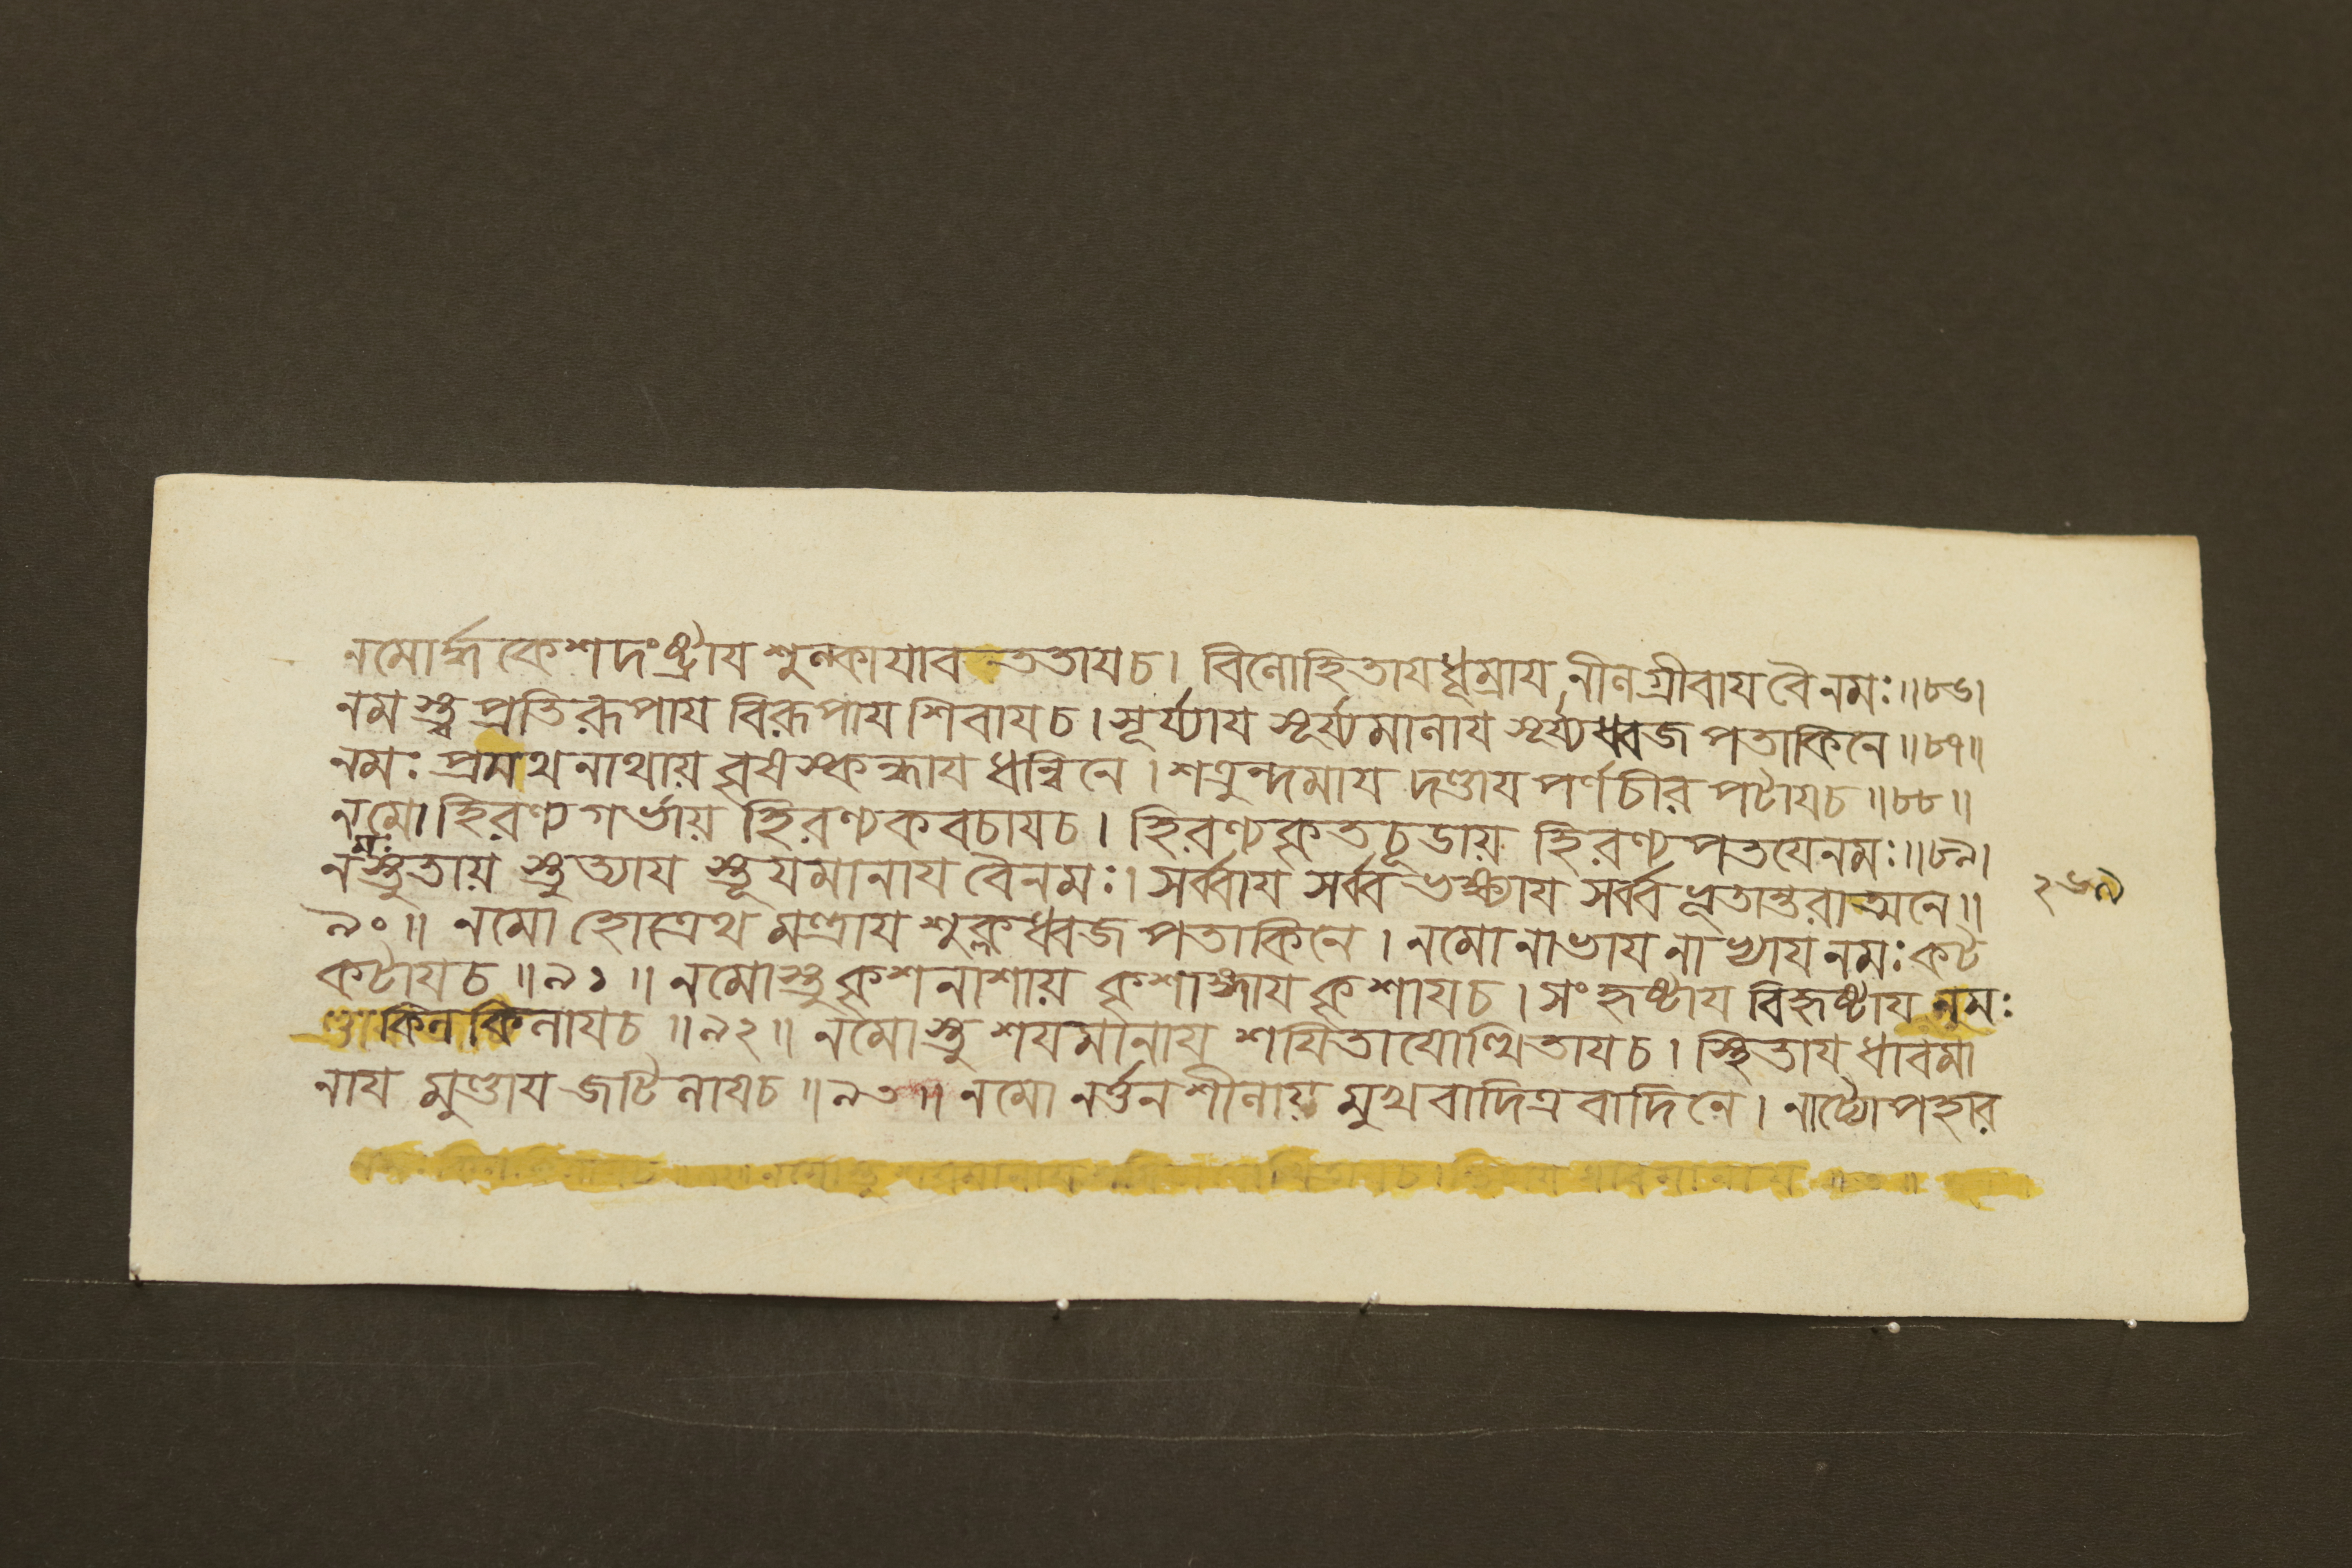 নমোর্দ্ধকেশদংষ্ট্রায শুষ্কাযাবততাযচ। বিলোহিতাযধূম্রায নীলগ্রীবায বৈনমঃ॥৮৬।
নমস্ত্ব প্রতিরূপায বিরূপায শিবাযচ। সূর্য্যায সূর্য্যমালায সূর্য্যধ্বজ পতাকিনে॥৮৭॥
নমঃ প্রমথনাথায় বৃষস্কন্ধায ধন্বিনে। শত্রুন্দমায দণ্ডায পর্ণচীর পটাযচ॥৮৮॥
নমো হিরণ্যগর্ভায় হিরণ্যকবচাযচ। হিরণ্যকৃতচূডায় হিরণ্যপতযেনমঃ॥৮৯।
নমঃস্তুতায় স্তুত্যায স্তূযমানায বৈনমঃ। সর্ব্বায সর্ব্বভক্ষ্যায সর্ব্বভূতান্তরাত্মনে॥
৯০॥ নমো হোত্রেথ মন্ত্রায শুক্লধ্বজ পতাকিনে। নমো নাভায নাভ্যায নমঃ কট
কটাযচ॥৯১॥ নমোস্তুকৃশনাশায় কৃশাঙ্গায কৃশাযচ। সংহৃষ্টায বিহৃষ্টায নমঃ
কিলকিলাযচ॥৯২॥ নমোস্তু শযমানায শযিতাযোত্থিতাযচ। স্থিতায ধাবমা
নায মুণ্ডায জটিলাযচ॥৯৩॥ নমো নর্ত্তনশীলায় মুখবাদিত্রবাদিনে। নাট্যোপহার
২৬৯